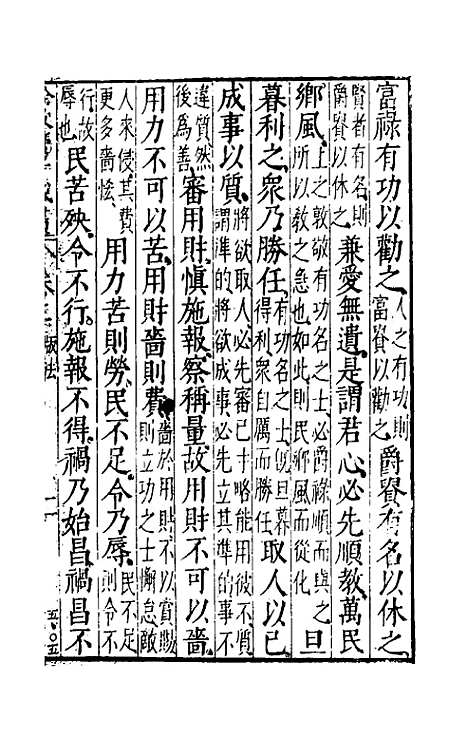 富祿有功以勸之人之有功則富賚以勸之爵賚有名以休之
賢者有名則爵賚以休之兼愛無遺是謂君心必先順教萬民
鄉風上之敦敬有功名之士必爵祿順而與之所以教之急也如此則民鄉風而從化旦
暮利之眾乃勝任有功名之士旣旦暮得利眾自厲而勝任取人以己
成事以質將欲取人必先審己才略能用彼不質謂準的將欲成事必先立其準的事不
違質然後為善審用財愼施報察稱量故用財不可以嗇
用力不可以苦用財嗇則費嗇於用財不以賞賜則立功之士懈怠敵
人來侵其費更多嗇恡用力苦則勞民不足令乃辱民不足則令不
行故辱也民苦殃令不行施報不得禍乃始昌禍昌不
版法
五〇五